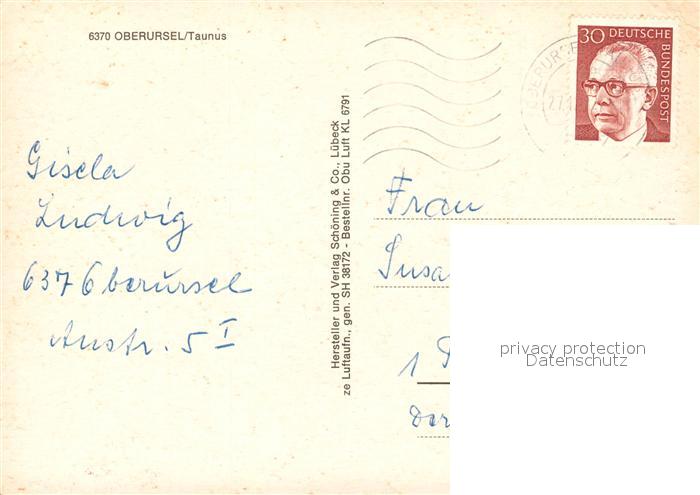 6370 OBERURSEL/Taunus
30 DEUTSCHE
BUNDESPOST
OBERURSE
27.1
Gisela
Ludwig
637 Oberursel
Austr. 5 I
Hersteller und Verlag Schöning & Co., Lübeck
ze Luftaufn., gen. SH 38172 - Bestellnr. Obu Luft KL 6791
Frau
Susa
1
privacy protection
Datenschutz